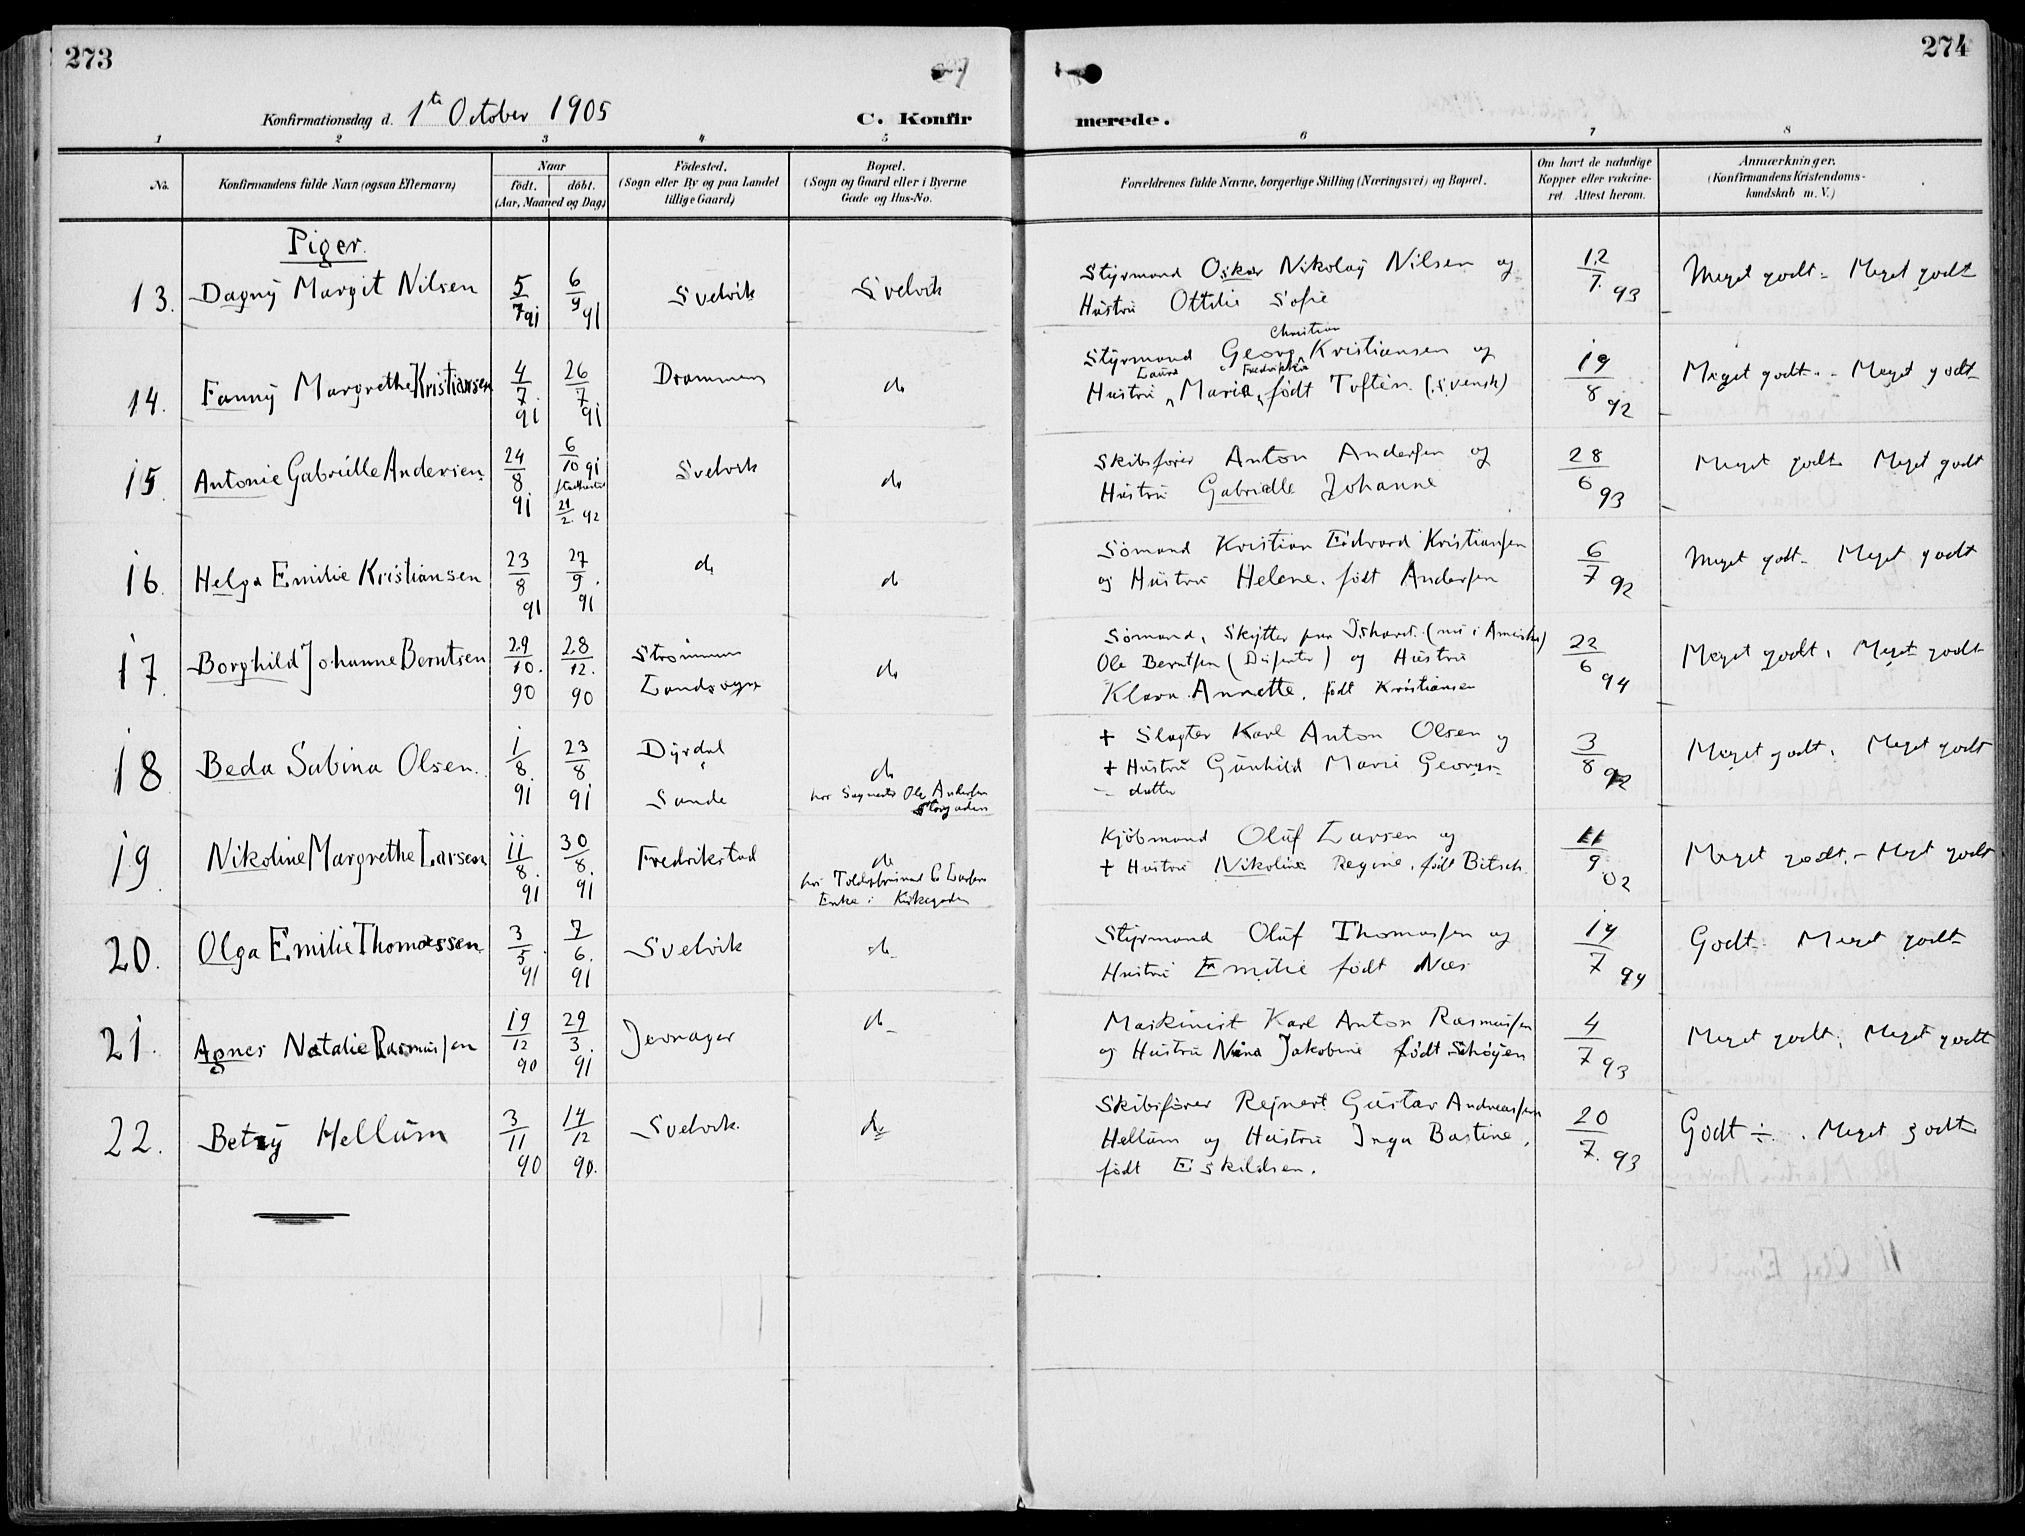 273
274
Konfirmationsdag d. 1te October 1905
C. Konfirmerede.
1 2 3 4 5 6 7 8
No. Konfirmandens fulde Navn (ogsaa Efternavn) Naar født. døbt. (Aar, Maaned og Dag) Fødested. (Sogn eller By og paa Landet tillige Gaard) Bopæl. (Sogn og Gaard eller i Byerne Gade og Hus-No.
Forældrenes fulde Navne, borgerlige Stilling (Næringsvei) og Bopæl. Om havt de naturlige Kopper eller vakcineret. Attest herom. Anmærkninger. (Konfirmandens Kristendomskundskab m. V.)
Piger.
13. Dagny Margit Nilsen 5/7 91 6/9 91 Svelvik Svelvik Styrmand Oskar Nikolay Nilsen og
Hustru Ottilie Sofie 12/7. 93 Meget godt - Meget godt
14. Fanny Margrethe Kristiansen 4/7. 91 26/7 91 Drammen do Styrmand Georg Christian Kristiansen og
Hustru Laura Maria Fredrikka født Toftén (svensk) 19/8 92 Meget godt. - Meget godt
15. Antonie Gabrielle Andersen 24/8 91 6/10 91 21/2. 92 Svelvik do Skibsfører Anton Andersen og
Hustru Gabrielle Johanne 28/6 93 Meget godt Meget godt
16. Helga Emilie Kristiansen 23/8 91 27/9. 91 do do Sømand Kristian Edvard Kristiansen
og Hustru Helene. født Andersen 6/7 92 Meget godt - Meget godt
17. Borghild Johanne Berntsen 29/10. 90 28/12. 90 Strømmen Landsogn do Sømand, Skytter paa Ishavet. (nu i Amerika)
Ole Berntsen (Dissenter) og Hustru
Klara Annette. født Kristiansen 22/6 94 Meget godt. Meget godt
18 Beda Sabina Olsen. 1/8. 91 23/8 91 Dyrdal Sande do
hos Ole Andersen
Storgaden + Slagter Karl Anton Olsen og
+ Hustru Gunhild Marie Georgs-
datter 3/8 92 Meget godt. Meget godt
19. Nikoline Margrethe Larsen 11/8. 91 30/8. 91 Fredrikstad do
hos Larsens
Enke i Kirkegaden Kjøbmand Oluf Larsen og
+ Hustru Nikoline Regine, født Bitsch. 11/9. 02 Meget godt. - Meget godt
20. Olga Emilie Thomassen 3/5. 91 7/6. 91 Svelvik do Styrmand Oluf Thomassen og
Hustru Emilie født Næs 19/7 94 Godt - Meget godt
21. Agnes Natalie Rasmussen 19/12 90 29/3. 91 Jevnager do Maskinist Karl Anton Rasmussen
og Hustru Nina Jakobine født Schøyen 4/7 93 Meget godt. Meget godt
22. Betzy Hellum 3/11 90 14/12 90. Svelvik. do Skibsfører Rejnert Gustav Andreassen
Hellum og Hustru Inga Bastine,
født Eskildsen. 20/7. 93 Godt ÷. Meget godt